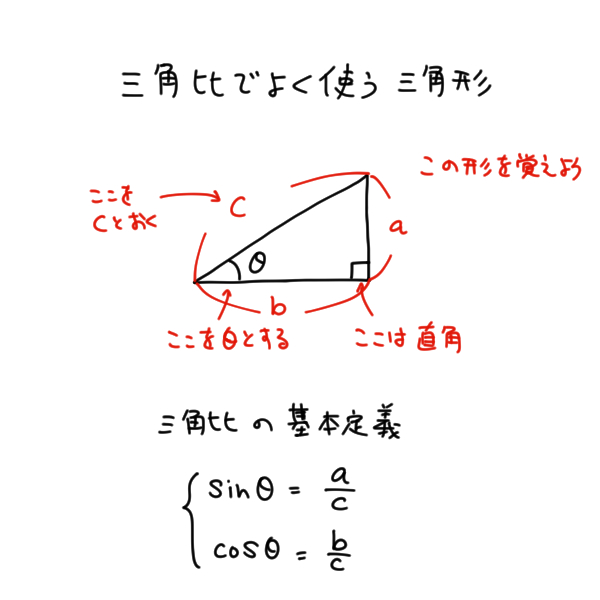 三角比でよく使う三角形
この形を覚えよう
ここを
Cとおく
C
a
θ
b
ここをθとする
ここは直角
三角比の基本定義
sinθ = a/c
cosθ = b/c